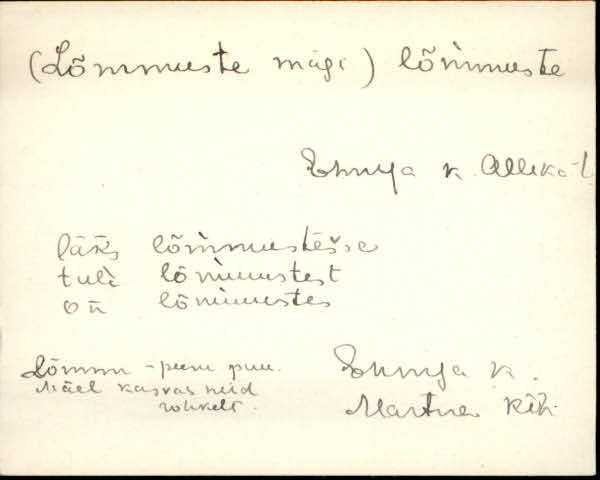 (Lõmmuste mägi) lõmmuste
Ehmja k. Allika t.
läks lõmmustesse
tuli lõmmustest
on lõmmustes
Lõmm - peru puu.
Mäel kasvas neid
rohkelt.
Ehmja k.
Martna khk.